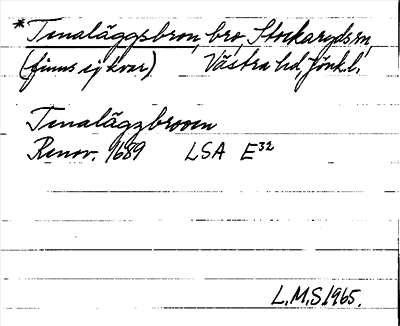 *Tenaläggsbron, bro, Stockarydsn,
(finns ej kvar) Västra hd, Jönk.l.
Tenalägzbrooen
Renov. 1689 LSA E32
L.M.S. 1965.